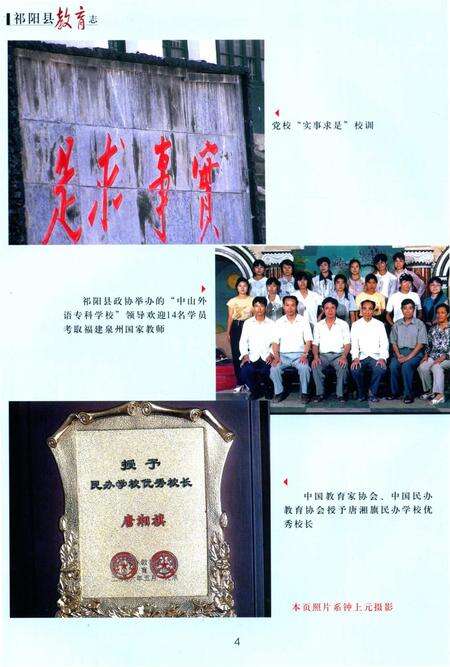 祁阳县教育志
是求事實
党校“实事求是”校训
祁阳县政协举办的“中山外
语专科学校”领导欢迎14名学员
考取福建泉州国家教师
授予
民办学校优秀校长
唐湘旗
中国教育家协会、中国民办
教育协会授予唐湘旗民办学校优
秀校长
本页照片系钟上元摄影
4